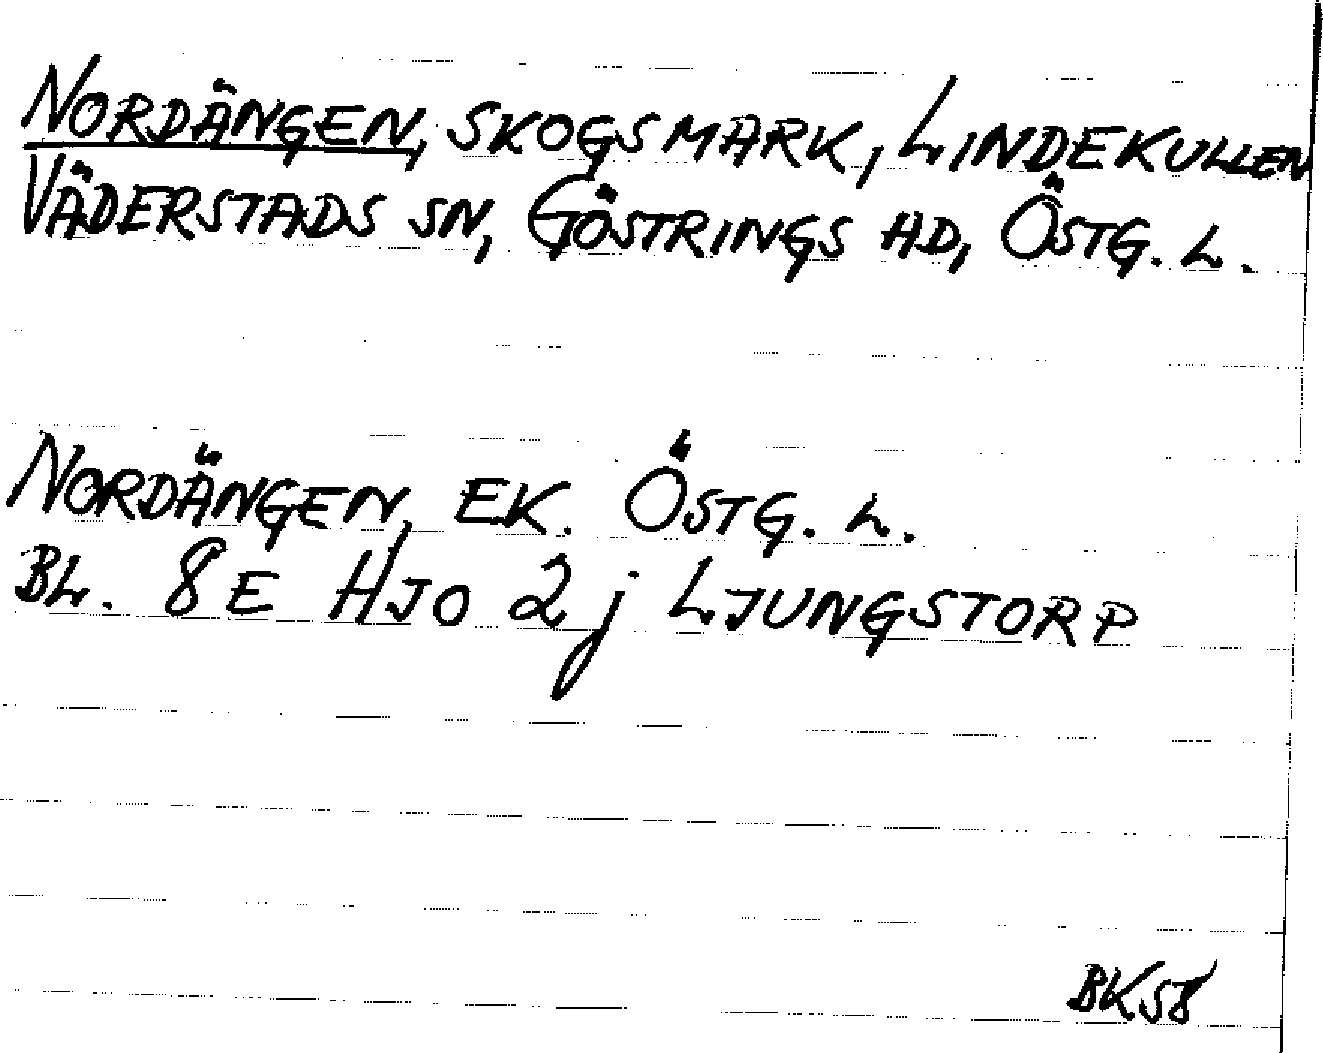 NORDÄNGEN, SKOGSMARK, LINDEKULLEN
VÄDERSTADS SN, GÖSTRINGS HD, ÖSTG. L.
NORDÄNGEN, EK. ÖSTG. L.
BL. 8E HJO 2j LJUNGSTORP
BKSB